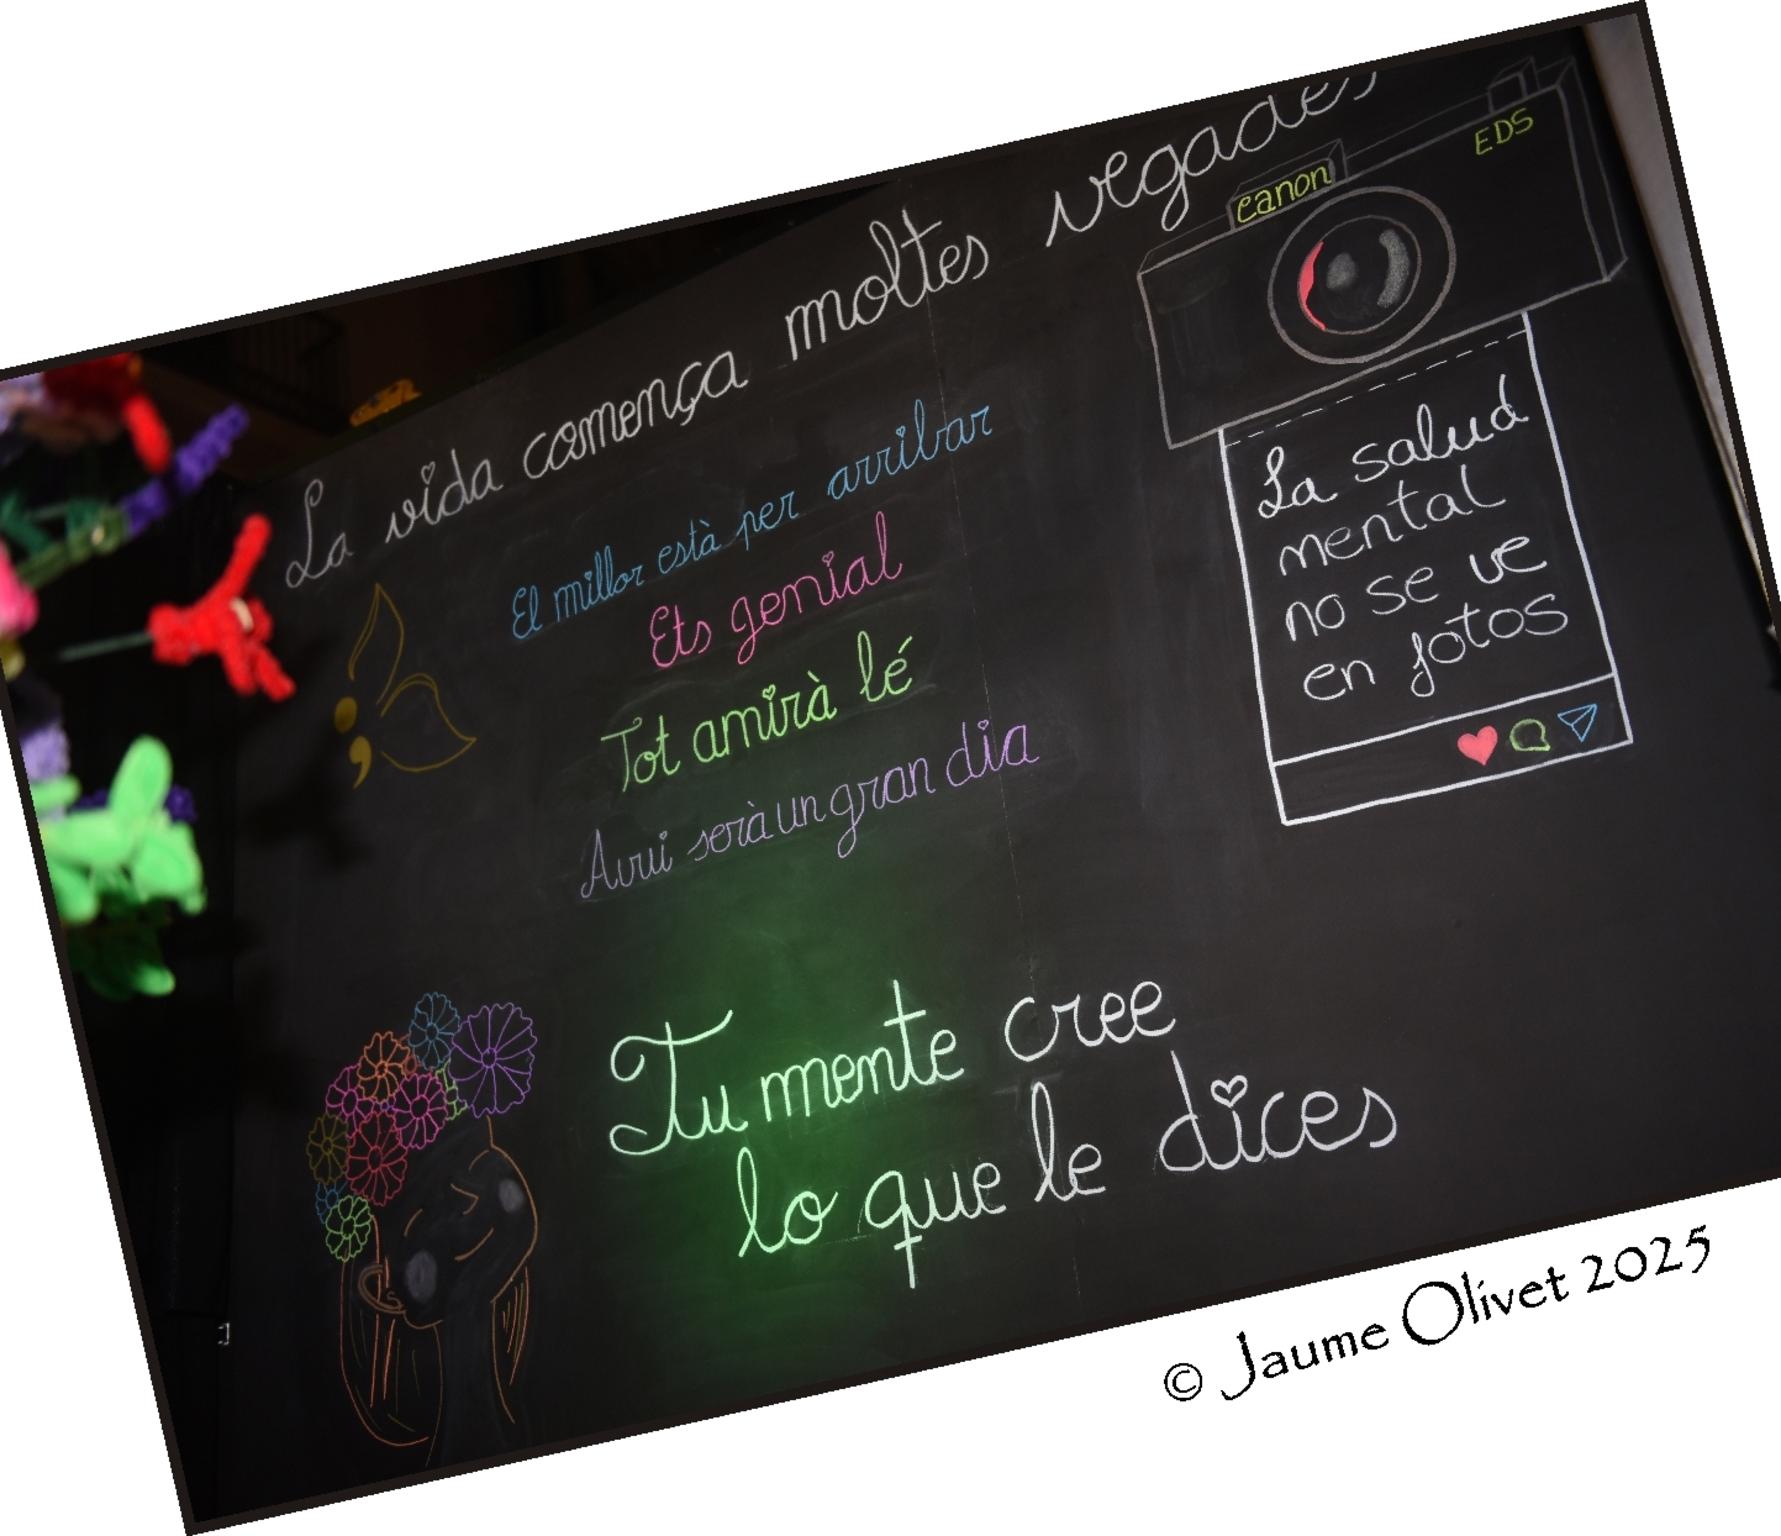 La vida comença moltes vegades
canon
EDS
El millor està per arribar
Ets genial
Tot amirà lé
Avui serà un gran dia
La salud
mental
no se ve
en fotos
Tu mente cree
lo que le dices
© Jaume Olivet 2025